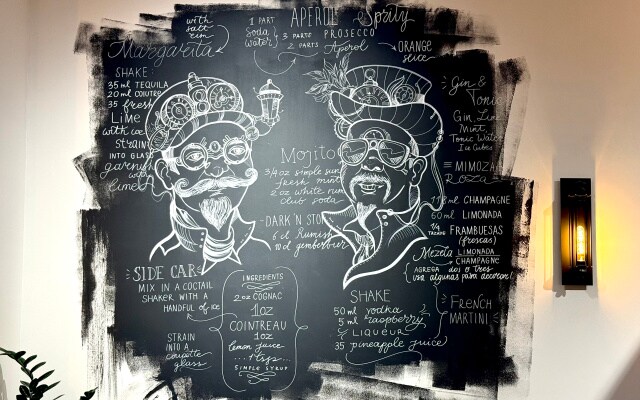 with
salt
rim
Margarita
SHAKE:
35 ml TEQUILA
20 ml COINTRE
35 fresh
LIME
with ice
STRAIN
INTO GLASS
garnish
with
lime
1 PART
Soda
water
APEROL Spritz
3 PARTS PROSECCO
2 PARTS Aperol
ORANGE
slice
Gin &
Tonic
Gin, Lime
Mint,
Tonic Water
Ice Cubes
Mojito
3/4 oz simple
fresh mint
2 oz white rum
club soda
DARK'N STO
MIMOZA
CHAMPAGNE
60 ml LIMONADA
FRAMBUESAS
(frescas)
Mezcla LIMONADA
CHAMPAGNE
AGREGA dos o tres
algunas para decorar!
SIDE CAR
MIX IN A COCTAIL
SHAKER WITH A
HANDFUL of ice
STRAIN
INTO A
coupette
glass
INGREDIENTS
2 oz COGNAC
1oz
COINTREAU
1oz
lemon juice
1 tsp
SIMPLE SYRUP
SHAKE
50 ml vodka
5 ml raspberry
LIQUEUR
35 pineapple juice
FRENCH
MARTINI